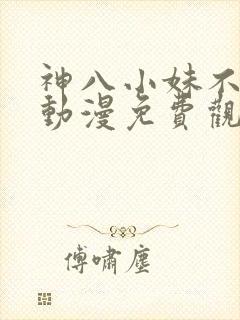 神八小妹不
動漫免費觀
傅嘯塵